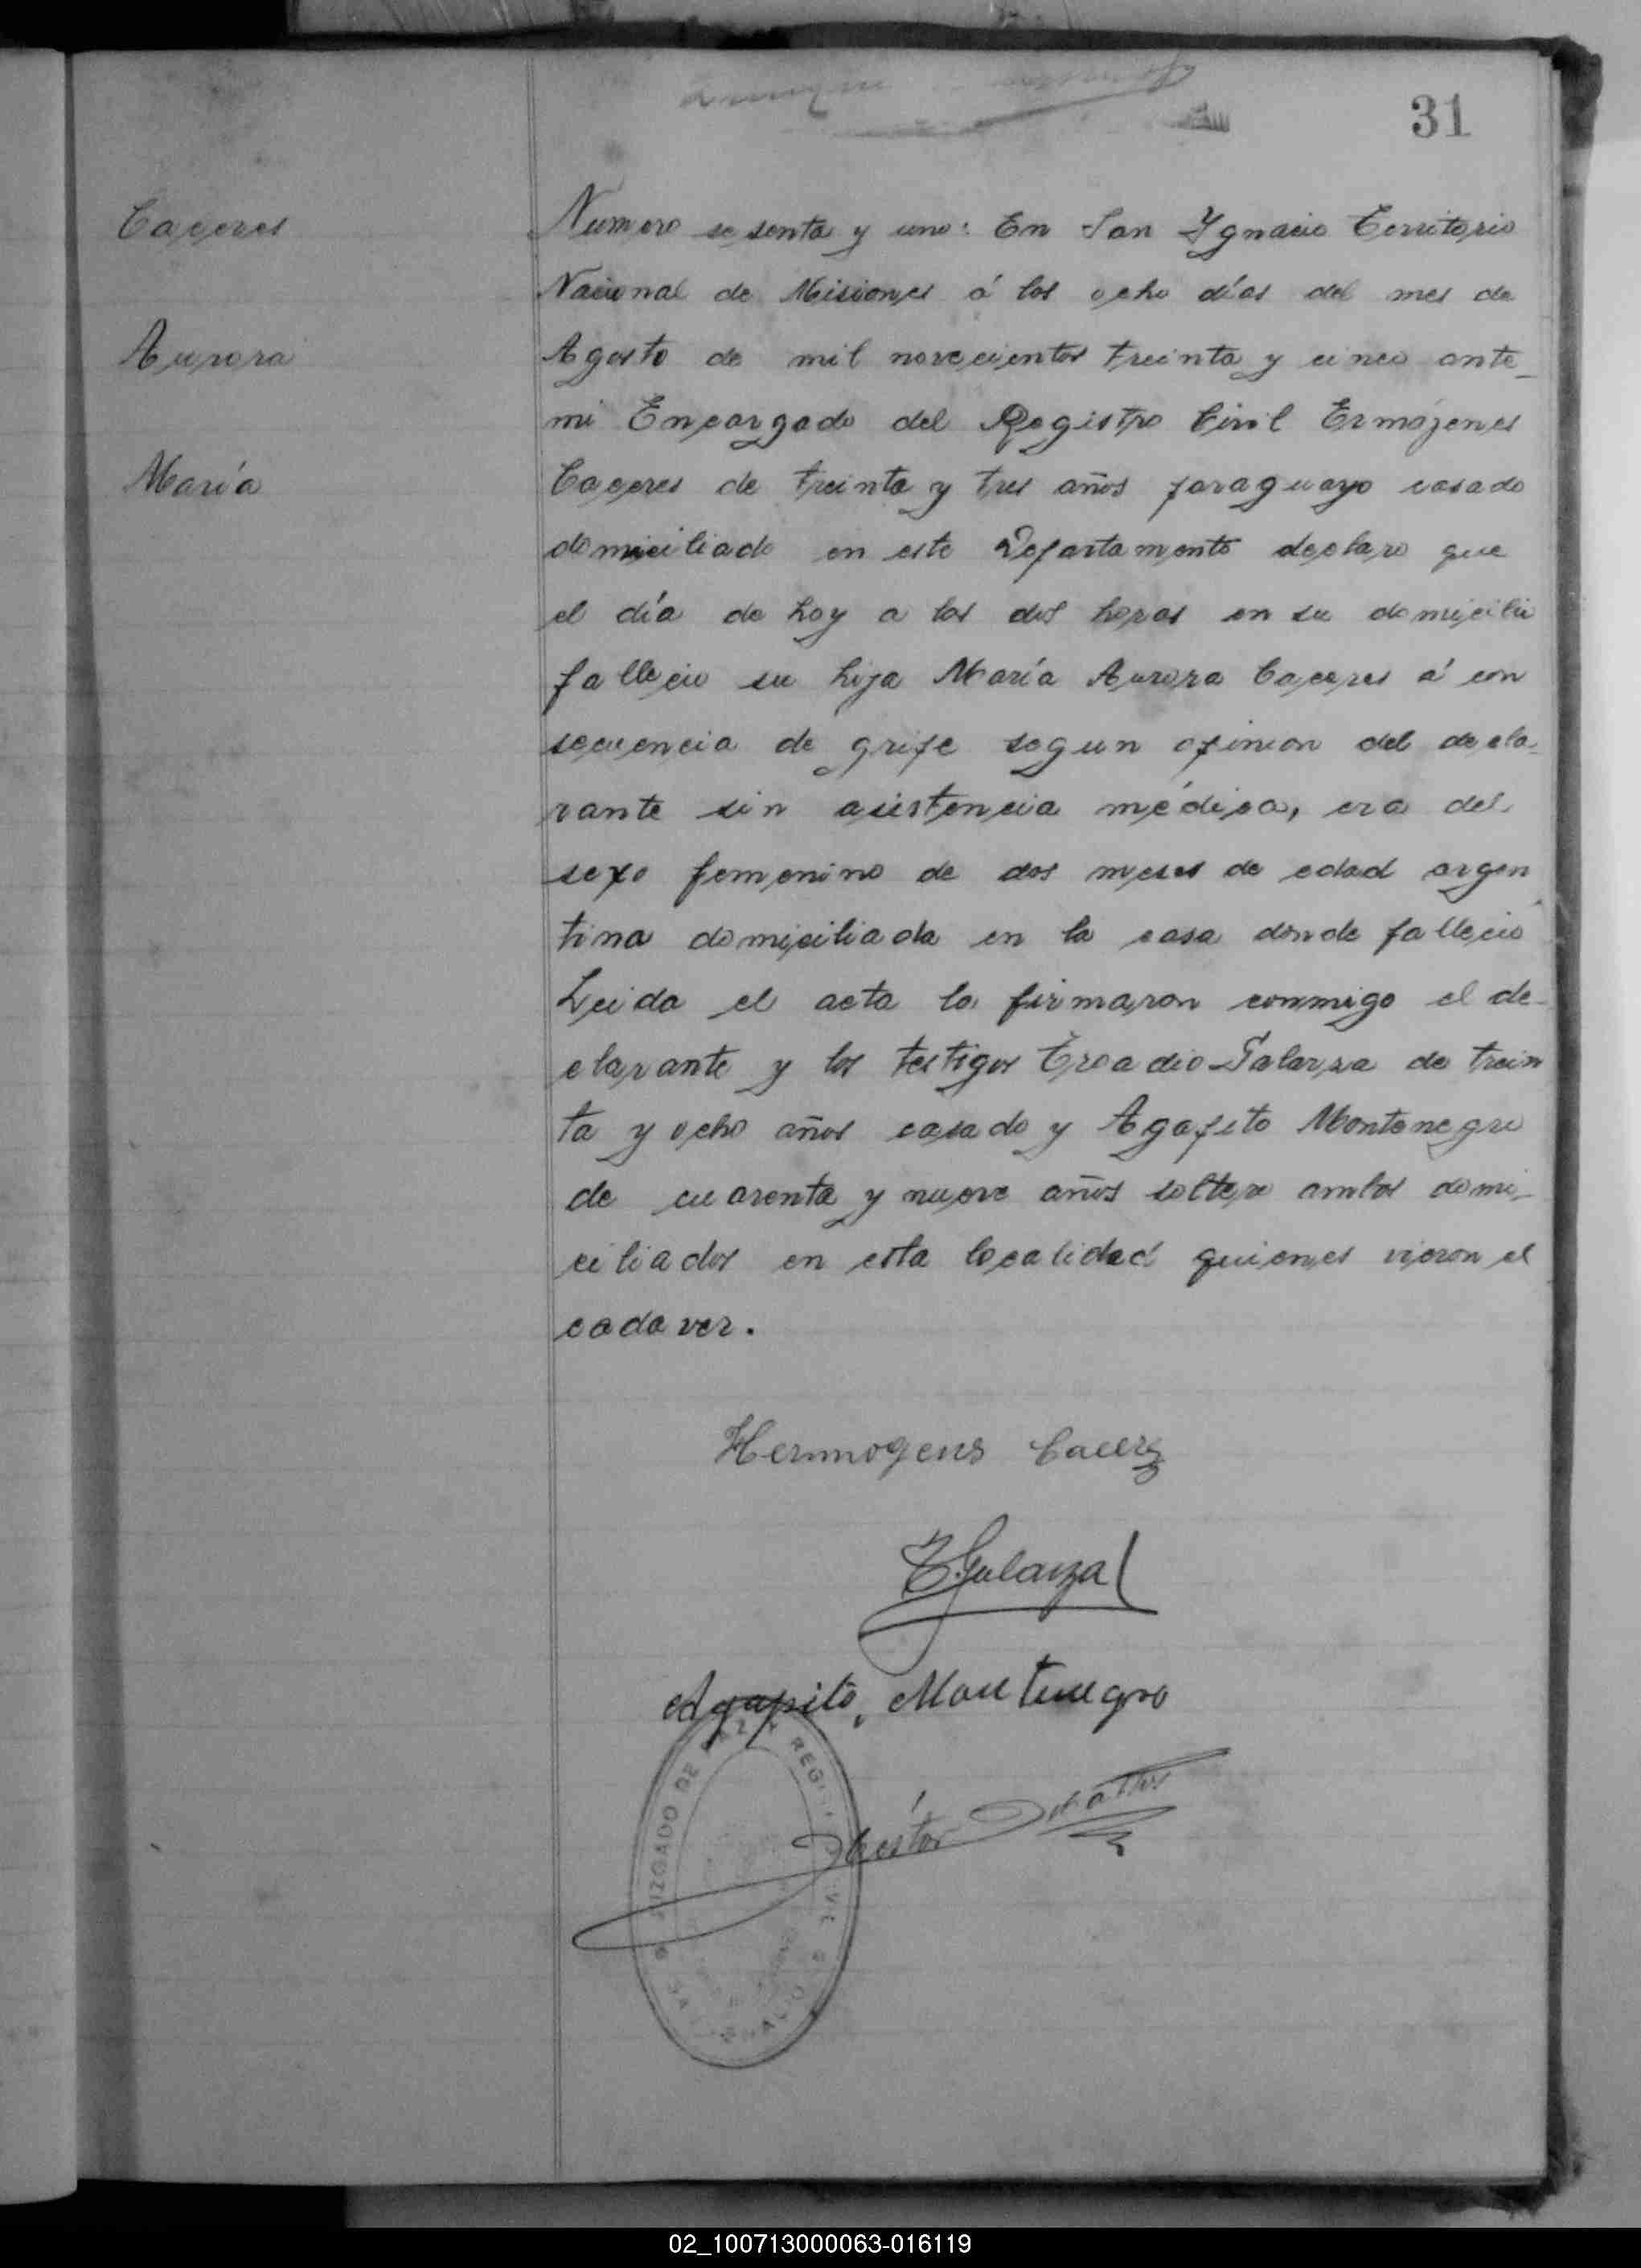 31
Caceres
Aurora
María
Numero sesenta y uno: En San Ygnacio Territorio
Nacional de Misiones á los ocho días del mes de
Agosto de mil novecientos treinta y cinco ante
mi Encargado del Registro Civil Ermójenes
Caceres de treinta y tres años paraguayo casado
domiciliado en este Departamento declaro que
el día de hoy a las dos horas en su domicilio
fallecio su hija María Aurora Caceres á con
secuencia de gripe segun opinion del decla-
rante sin asistencia médica, era del
sexo femenino de dos meses de edad argen
tina domiciliada en la casa donde falleció
Leida el acta la firmaron conmigo el de-
clarante y los testigos Troadio Galarza de trein
ta y ocho años casado y Agapito Montenegro
de cuarenta y nueve años soltero ambos domi-
ciliados en esta localidad quienes vieron el
cadaver.
Hermogens Cacerez
T Galarza
Agapito, Montenegro
JUZGADO DE PAZ Y REGI
Nestor
02_100713000063-016119